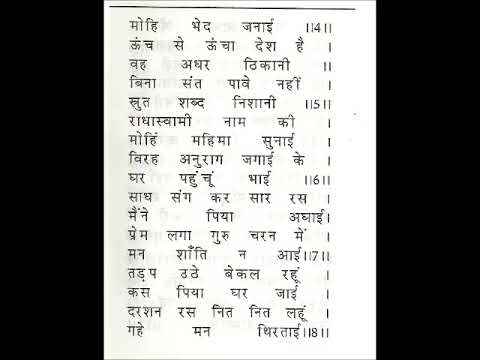 मोहि भेद जनाई ।।4।।
ऊंच से ऊंचा देश है ।
वह अधर ठिकानी ।।
बिना संत पावे नहीं ।
स्रुत शब्द निशानी ।।5।।
राधास्वामी नाम की ।
मोहिं महिमा सुनाई ।
विरह अनुराग जगाई के ।
घर पहुंचूं भाई ।।6।।
साध संग कर सार रस ।
मैंने पिया अघाई।
प्रेम लगा गुरु चरन में ।
मन शाँति न आई।।7।।
तड़प उठे बेकल रहूं ।
कस पिया घर जाई ।
दरशन रस नित नित लहूं ।
गहे मन थिरताई।।8।।